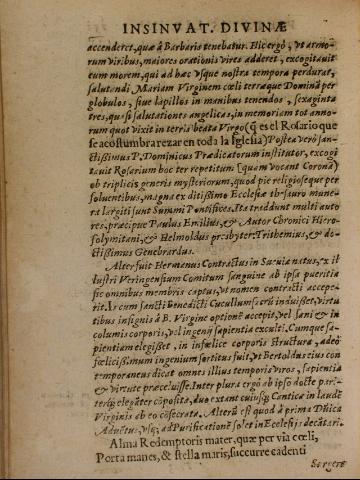 INSINVAT. DIVINÆ
accenderet, quæ à Barbaris tenebatur. Hic ergò, vt armo-
rum viribus, maiores orationis vires adderet, excogitauit
eum morem, qui ad hæc vsque nostra tempora perdurat,
salutandi Mariam Virginem cœli terræque Dominã per
globulos, siue lapillos in manibus tenendos, sexaginta
tres, quasi salutatẽs angelicas, in memoriam tot anno-
rum quot vixit in terris beata Virgo (q̃ es el Rosario que
se acostumbra rezar en toda la Iglesia) Postea verò san-
ctissimus P. Dominicus Prædicatorum institutor, excogi
tauit Rosarium hoc ter repetitum (quam vocant Coronã)
ob triplicis generis mysteriorum, quod pie religioseque per
soluentibus, magna ex ditissimo Ecclesiæ thesauro mune-
ra largiti sunt Summi Pontifices. Ita traddunt multi auto
res, præcipue Paulus Emilius, & Autor Chronici Hiero-
solymitani, & Helmoldus presbyter. Trithemius, & do-
ctissimus Genebrardus.
Alter fuit Hermanus Contractus in Sueuia natus, ex il
lustri Veringensium Comitum sanguine ab ipsa pueritia
sic omnibus membris captus, vt nomen contracti accepe-
rit. Is cum sancti Benedicti Cucullum
tibus insignis à B. Virgine optionẽ accepit, vel sani & in
columis corporis, vel ingenij sapientia exculti. Cumque sa-
pientiam elegisset, in infœlice corporis structura, adeò
fœlicissimum ingenium sortitus fuit, vt Bertoldus eius con
temporaneus dicat omnes illius temporis viros, sapientia
& virtute præcelluisse. Inter plura ergò ab ipso doctè pari-
terq; elegãter cõposita, duo extant cuiusq; Cantica in laudẽ
Virginis ab eo cõsecrata. Alterũ est quod à prima Dñica
Aduẽtus, vsq; ad Purificationẽ solet in Ecclesijs decãtari.
Alma Redemptoris mater, quæ per via cœli,
Porta manes, & stella maris, succurre cadenti
Surgere